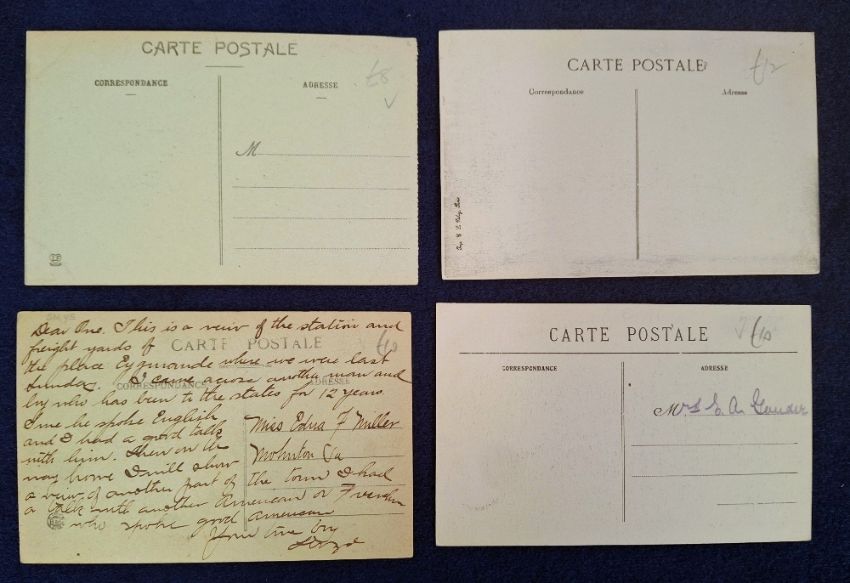 CARTE POSTALE
CORRESPONDANCE
ADRESSE
£8
M
CARTE POSTALE
£12
Correspondance
Adresse
Dear One. This is a veiw of the station and
freight yards of
CARTE POSTALE
£10
the place Eygurande where we were last
Sunday. I came across another man and
CORRESPONDANCE
ADRESSE
who has been to the states for 12 years
he spoke English
and I had a good talk
with him. Then on the
way home I will show
a view of another part of
the town I had
a talk with another American or Frenchm
who spoke good american
Your true boy
Lloyd
Miss Edna F Miller
Mohnton Pa
CARTE POSTALE
£10
CORRESPONDANCE
ADRESSE
Mrs G. A.